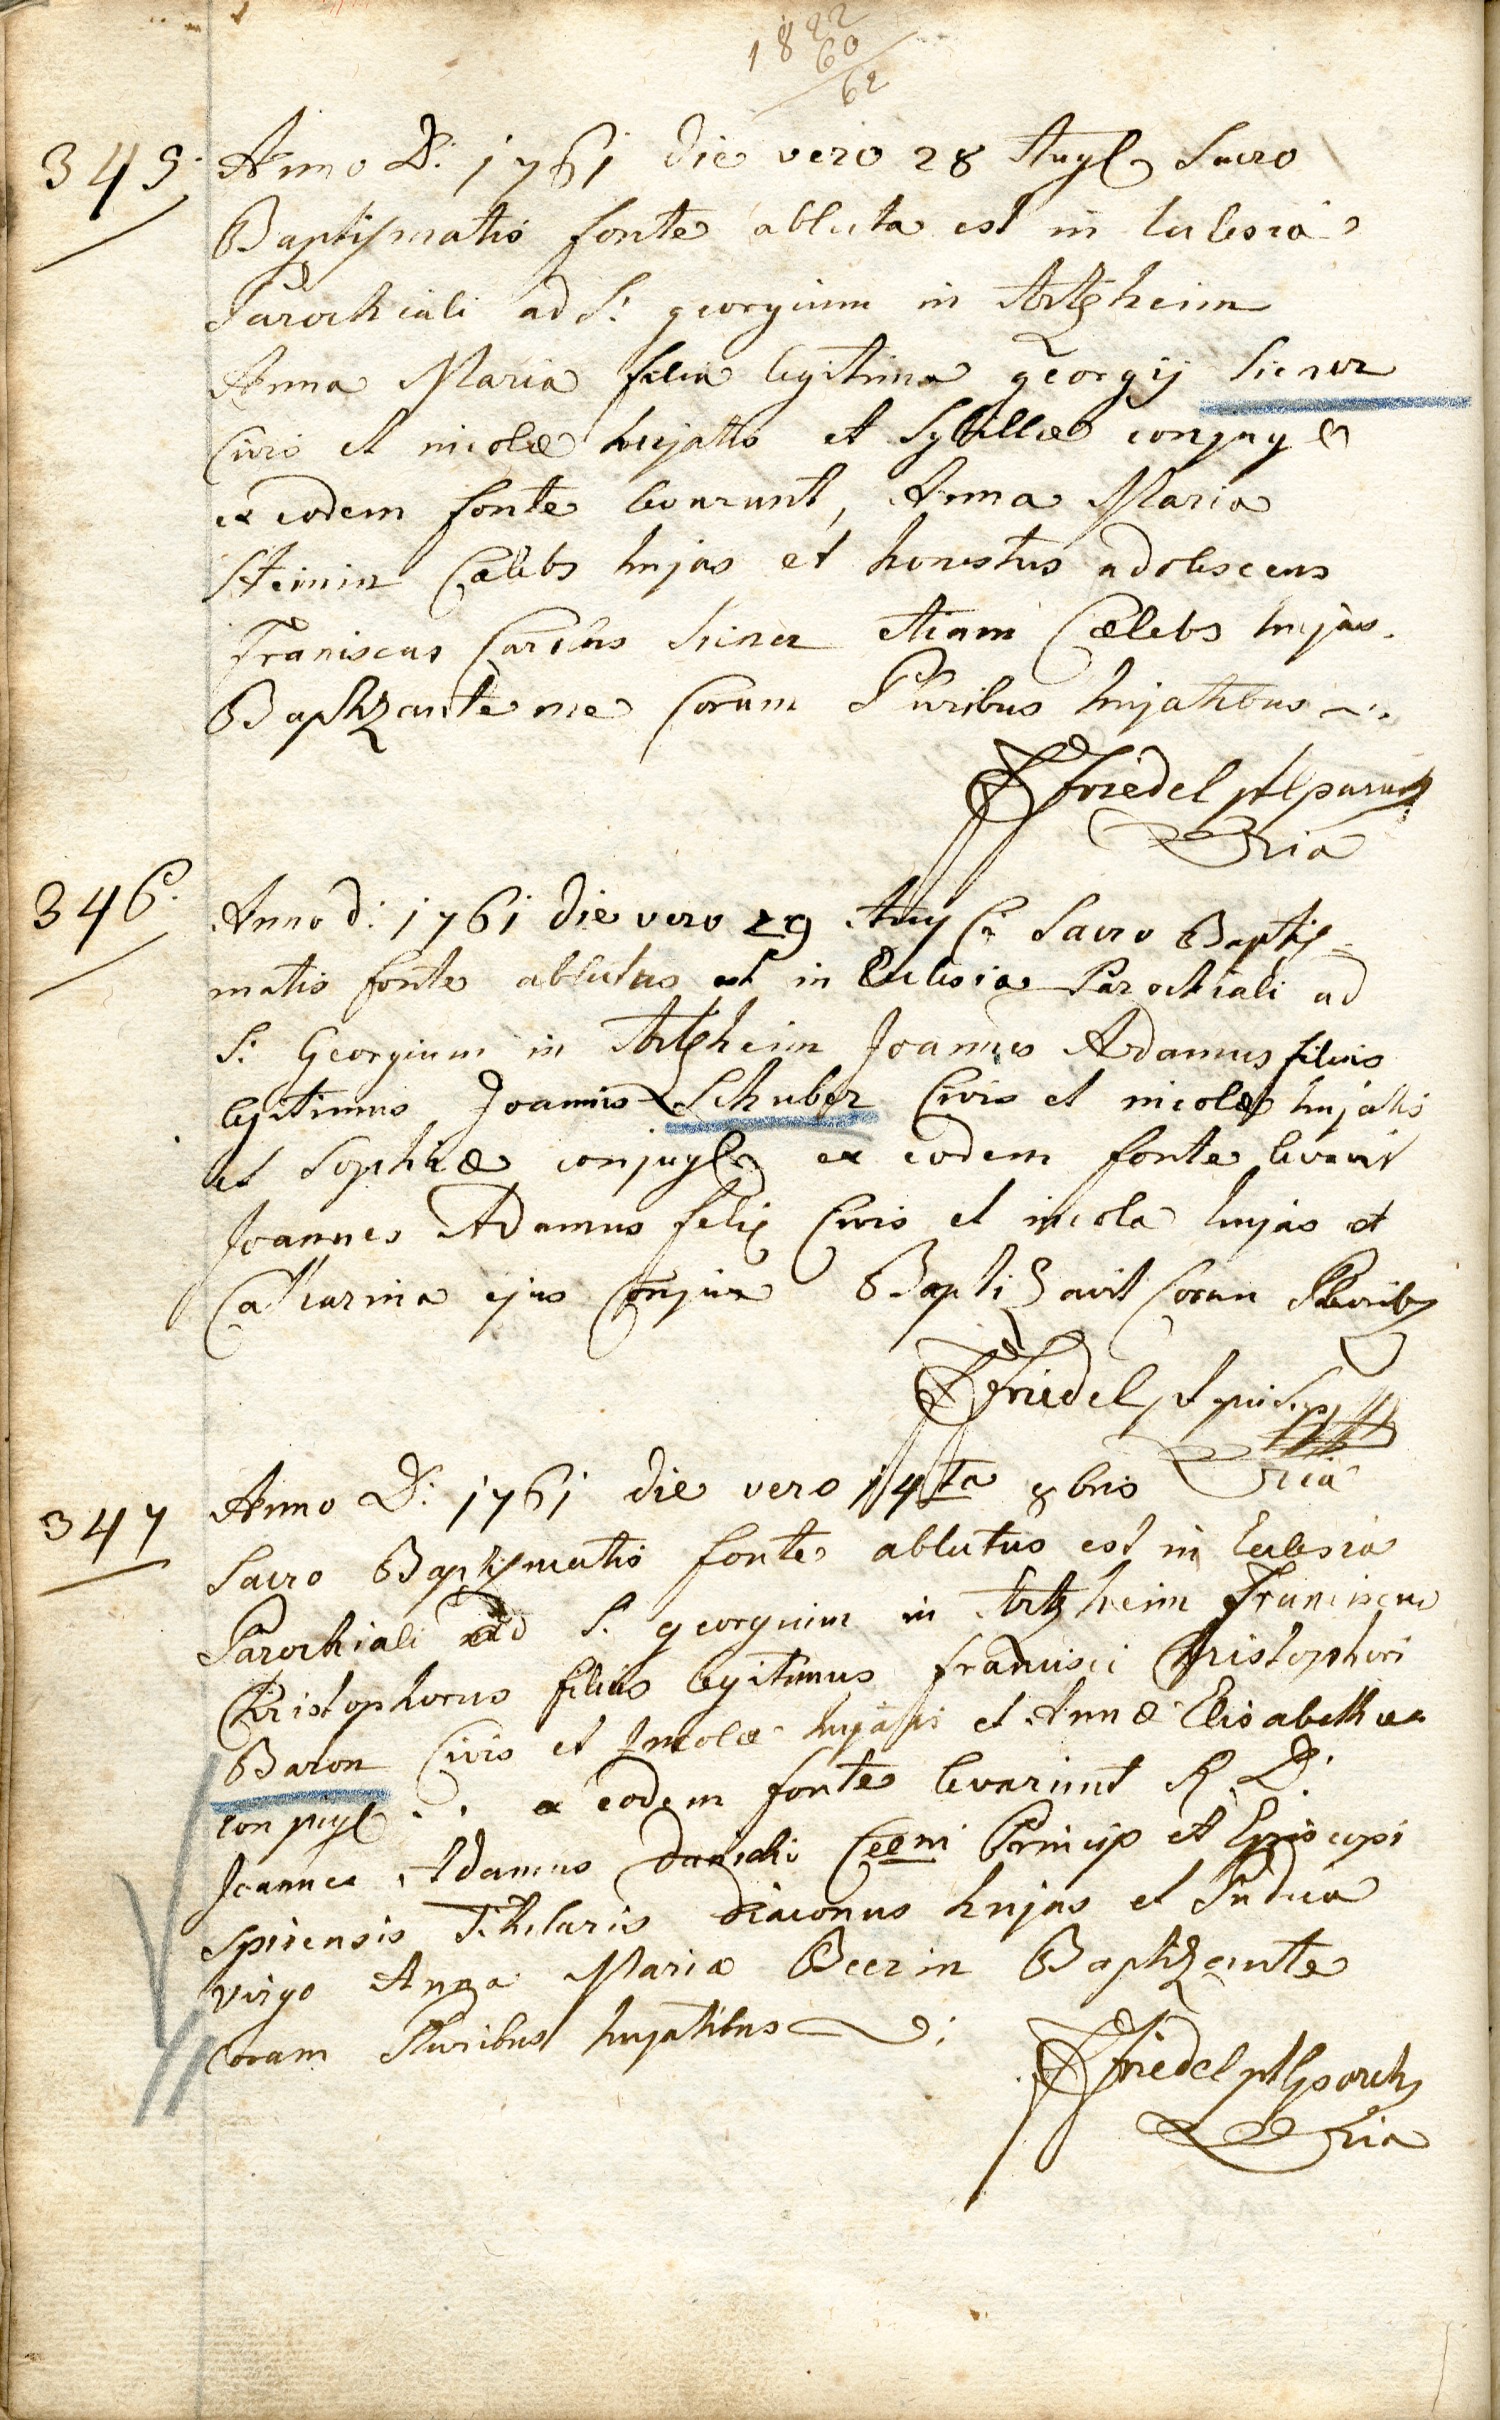 1822
60
62
345. Anno D: 1761 die vero 28 Augl Sacro
Baptismatis fonte abluta est in Eclesia
Parochiali ad S: georgium in Artzheim
Anna Maria filia legitima georgij Siener
Civis et incolæ hujatis et Sybillæ conjug
ex eodem fonte levarunt, Anna Maria
Steinin Cælebs hujas et honestus adolescens
Franiscus Carolus Siener etiam Cælebs hujas.
Baptizante me Coram Pluribus hujatibus
Friedel pl paruch
346. Anno d: 1761 die vero 29 Aug Sacro Baptis=
matis fonte ablutus est in Eclesia Parochiali ad
S: Georgium in Artzheim Joannes Adamus filius
legitimus Joannis Schuber Civis et incolæ hujatis
et Sophiæ conjugl ex eodem fonte levavit
Joannes Adamus felix Civis et incola hujas et
Catharina ejus Conjux Baptisavit Coram Pluribus
Friedel
347 Anno D: 1761 die vero 14ta 8bris
Sacro Baptismatis fonte ablutus est in Eclesia
Parochiali ad S: georgium in Artzheim Franciscus
Christophorus filius legitimus francisci Christophori
Baron Civis et Incolæ hujatis et Annæ Elisabethæ
conjugl . . ex eodem fonte levarunt R. D:
Joannes Adamus Ceeni Princip et Episcopi
Spirensis Titularis diaconus hujas et Pudica
virgo Anna Maria Beerin Baptizante
Coram Pluribus hujatibus
Friedel